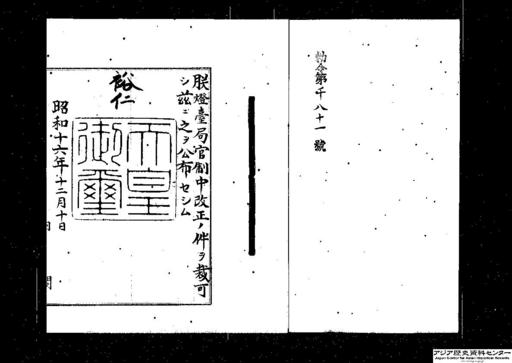 勅令第千八十一號
朕燈臺局官制中改正ノ件ヲ裁可
シ茲ニ之ヲ公布セシム
裕仁
天皇御璽
昭和十六年十二月十日
アジア歴史資料センター
Japan Center for Asian Historical Records